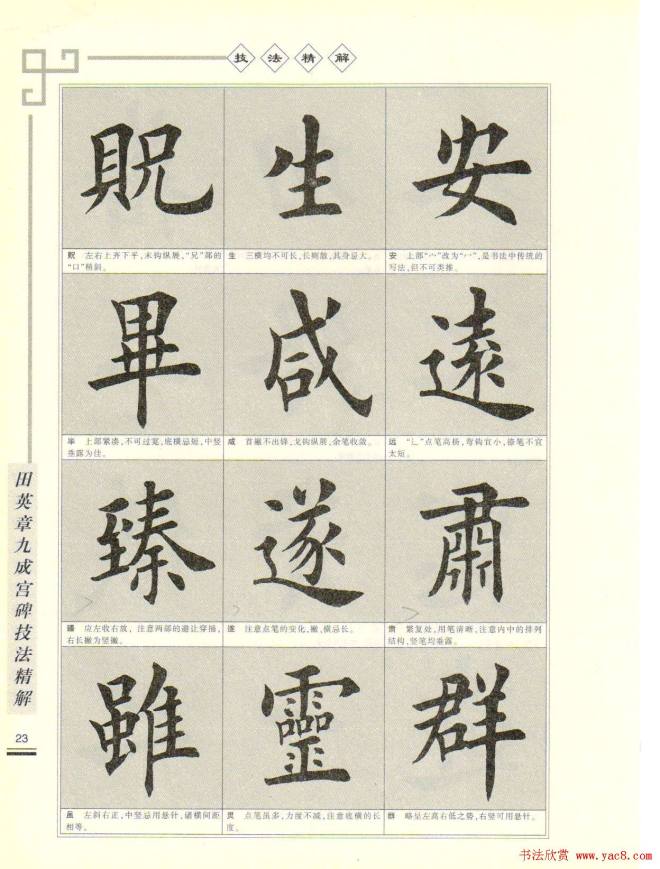 技法精解
貺
生
安
贶 左右上齐下平,末钩纵展,“兄”部的
“口”稍斜。
生 三横均不可长,长则散,其身忌大。
安 上部“宀”改为“冖”,是书法中传统的
写法,但不可类推。
畢
咸
遠
毕 上部紧凑,不可过宽,底横忌短,中竖
垂露为佳。
咸 首撇不出锋,戈钩纵展,余笔收敛。
远 “辶”点笔高扬,弯钩宜小,捺笔不宜
太短。
臻
遂
肅
臻 应左收右放,注意两部的避让穿插,
右长撇为竖撇。
遂 注意点笔的变化,撇、横忌长。
肃 繁复处,用笔清晰,注意内中的排列
结构,竖笔均垂露。
雖
靈
群
虽 左斜右正,中竖忌用悬针,诸横间距
相等。
灵 点笔虽多,力度不减,注意底横的长
度。
群 略呈左高右低之势,右竖可用悬针。
田英章九成宫碑技法精解
23
书法欣赏 www.yac8.com